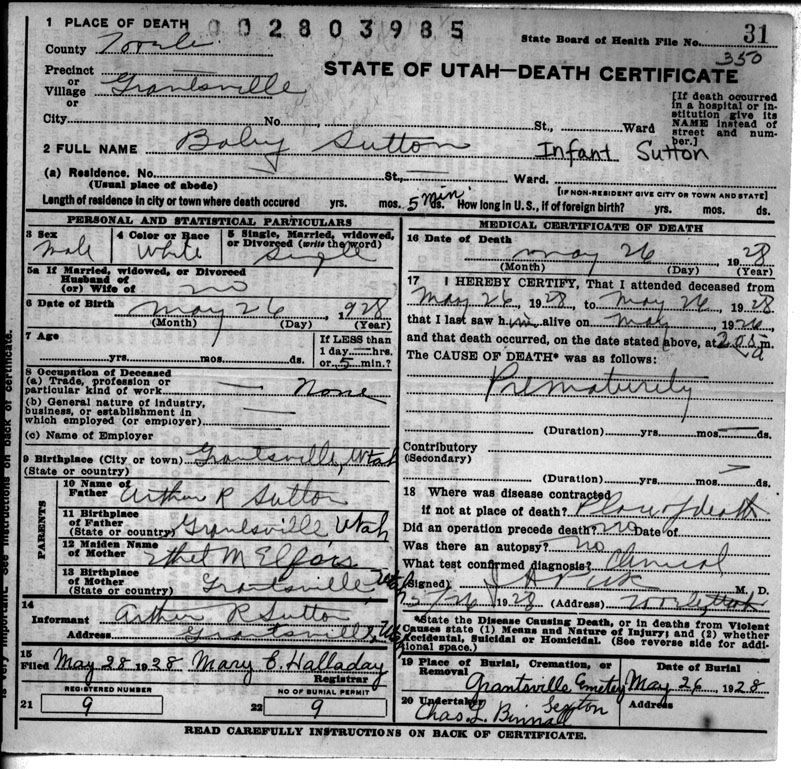 1 PLACE OF DEATH 002803985 State Board of Health File No. 31
County Tooele 350
Precinct or Village Grantsville
STATE OF UTAH—DEATH CERTIFICATE
or
City No. St., Ward
[If death occurred in a hospital or institution give its NAME instead of street and number.]
2 FULL NAME Baby Sutton Infant Sutton
(a) Residence. No. St., Ward.
(Usual place of abode) [IF NON-RESIDENT GIVE CITY OR TOWN AND STATE]
Length of residence in city or town where death occured yrs. mos. 5 min. ds. How long in U.S., if of foreign birth? yrs. mos. ds.
PERSONAL AND STATISTICAL PARTICULARS
3 Sex Male
4 Color or Race White
5 Single, Married, widowed, or Divorced (write the word) Single
5a If Married, widowed, or Divorced
Husband of
(or) Wife of no
6 Date of Birth May 26 1928
(Month) (Day) (Year)
7 Age
yrs. mos. ds.
If LESS than
1 day hrs.
or 5 min.?
8 Occupation of Deceased
(a) Trade, profession or
particular kind of work None
(b) General nature of industry,
business, or establishment in
which employed (or employer)
(c) Name of Employer
9 Birthplace (City or town) Grantsville, Utah
(State or country)
PARENTS
10 Name of Father Arthur R Sutton
11 Birthplace of Father Grantsville Utah
(State or country)
12 Maiden Name of Mother Ethel M
13 Birthplace of Mother Grantsville Utah
(State or country)
14
Informant Arthur R Sutton
Address Grantsville Utah
15
Filed May 28 1928 Mary E. Halladay
Registrar
REGISTERED NUMBER NO OF BURIAL PERMIT
21 9 22 9
MEDICAL CERTIFICATE OF DEATH
16 Date of Death May 26 1928
(Month) (Day) (Year)
17 I HEREBY CERTIFY, That I attended deceased from
May 26, 1928, to May 26, 1928
that I last saw him alive on May, 1926
and that death occurred, on the date stated above, at 205 a m.
The CAUSE OF DEATH* was as follows:
Prematurity
(Duration) yrs. mos. ds.
Contributory
(Secondary)
(Duration) yrs. mos. ds.
18 Where was disease contracted
if not at place of death? Place of death
Did an operation precede death? no Date of
Was there an autopsy? no
What test confirmed diagnosis? Clinical
(Signed) M. D.
5/26 1928 (Address) Tooele Utah
*State the Disease Causing Death, or in deaths from Violent
Causes state (1) Means and Nature of Injury; and (2) whether
Accidental, Suicidal or Homicidal. (See reverse side for additional space.)
19 Place of Burial, Cremation, or Removal Date of Burial
Grantsville Cemetery May 26, 1928
20 Undertaker Sexton Address
Chas. L.
READ CAREFULLY INSTRUCTIONS ON BACK OF CERTIFICATE.